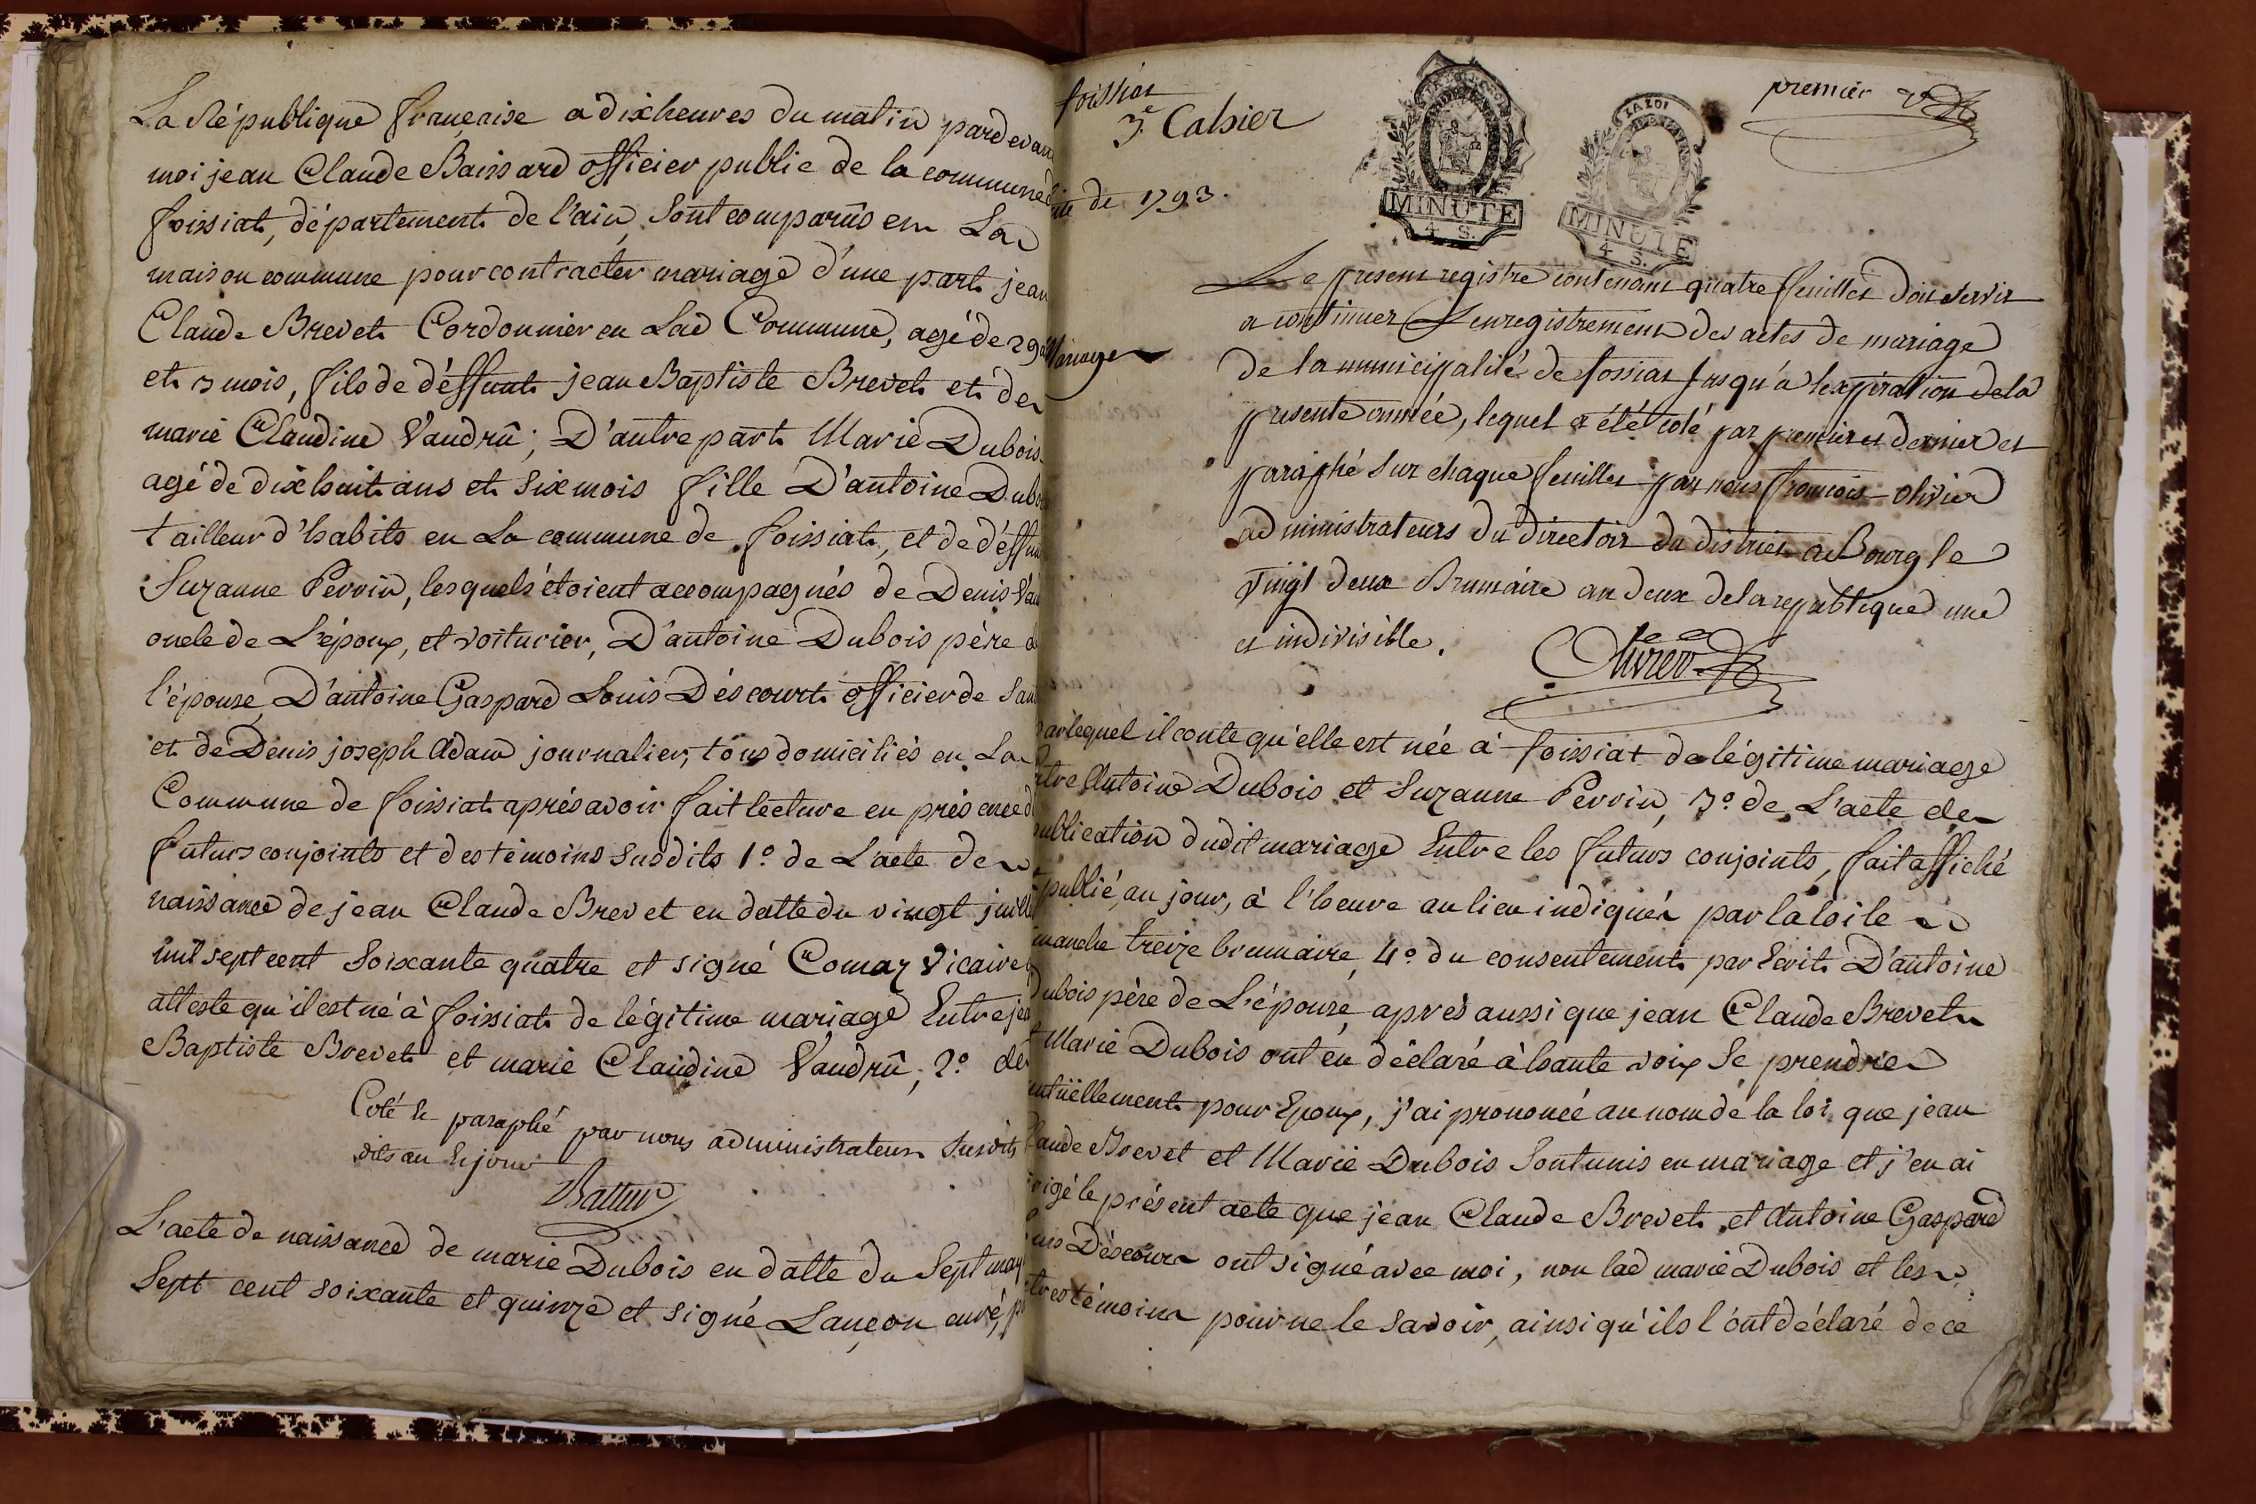 La République francaise a dix heures du matin pardevan
moi jean Claude Baissard officier public de la commune d
foissiat, département de l'ain, Sont comparûs en La
maison commune pour contracter mariage d'une part jean
Claude Brevet Cordonnier en Lad Commune, agé de 29 a
et 3 mois, fils de déffunt jean Baptiste Brevet et de
marie Claudine Vaudrû; D'autre part Marie Dubois
agé de dix huit ans et Six mois fille D'antoine Dubo
tailleur d'habits en La commune de foissiat, et de déffun
Suzanne Perrin, lesquels étoient accompagnés de Denis Vau
oncle de L'époux, et voiturier, D'antoine Dubois père d
l'épouse, D'antoine Gaspard Louis Déscourt officier de San
et de Denis joseph Adam journalier, tous domiciliés en La
Commune de foissiat aprés avoir fait lecture en présence d
futurs conjoints et des témoins Susdits 1.º de L'acte de
naissance de jean Claude Brevet en datte du vingt juill
mil sept cent Soixante quatre et signé Comaz Vicaire
atteste qu'il est né à foissiat de légitime mariage Entre jea
Baptiste Brevet et marie Claudine Vaudrû, 2.º de
Coté & paraphé par nous administrateur Susdits
dits an & jour
L'acte de naissance de marie Dubois en datte du Sept may
Sept cent soixante et quinze et signé Lançon curé, p
foissiat
3.e Cahier
premier
de 1793.
MINUTE
4 S.
LA LOI
MINUTE
4 S.
Mariage
Le present registre contenant quatre feuilles doit servir
a continuer L'enregistrement des actes de mariage
de la municipalité de fossiat jusqu'a l'expiration de la
presente année, lequel a été coté par premier et dernier et
paraphé sur chaque feuilles par nous francois olivier
administrateurs du directoir du district a Bourg le
vingt deux Brumaire an deux de la republique une
et indivisible.
Olivier
par lequel il conte qu'elle est née à foissiat de légitime mariage
ntre Antoine Dubois et Suzanne Perrin, 3.º de L'acte de
publication dudit mariage Entre les futurs conjoints, fait affiché
publié, au jour, à l'heure au lieu indiqués par la loi le
manche treize brumaire, 4.º du consentement par Ecrit D'antoine
Dubois père de L'épouse, aprés aussi que jean Claude Brevet
t Marie Dubois ont eu déclaré à haute voix Se prendre
mutuëllement pour Epoux, j'ai prononcé au nom de la loi que jean
Claude Brevet et Marie Dubois Sont unis en mariage et j'en ai
rigé le présent acte que jean Claude Brevet, et Antoine Gaspard
ouis Déscourt ont signé avec moi, non lad marie Dubois et les
tres témoins pour ne le savoir, ainsi qu'ils l'ont déclaré de ce